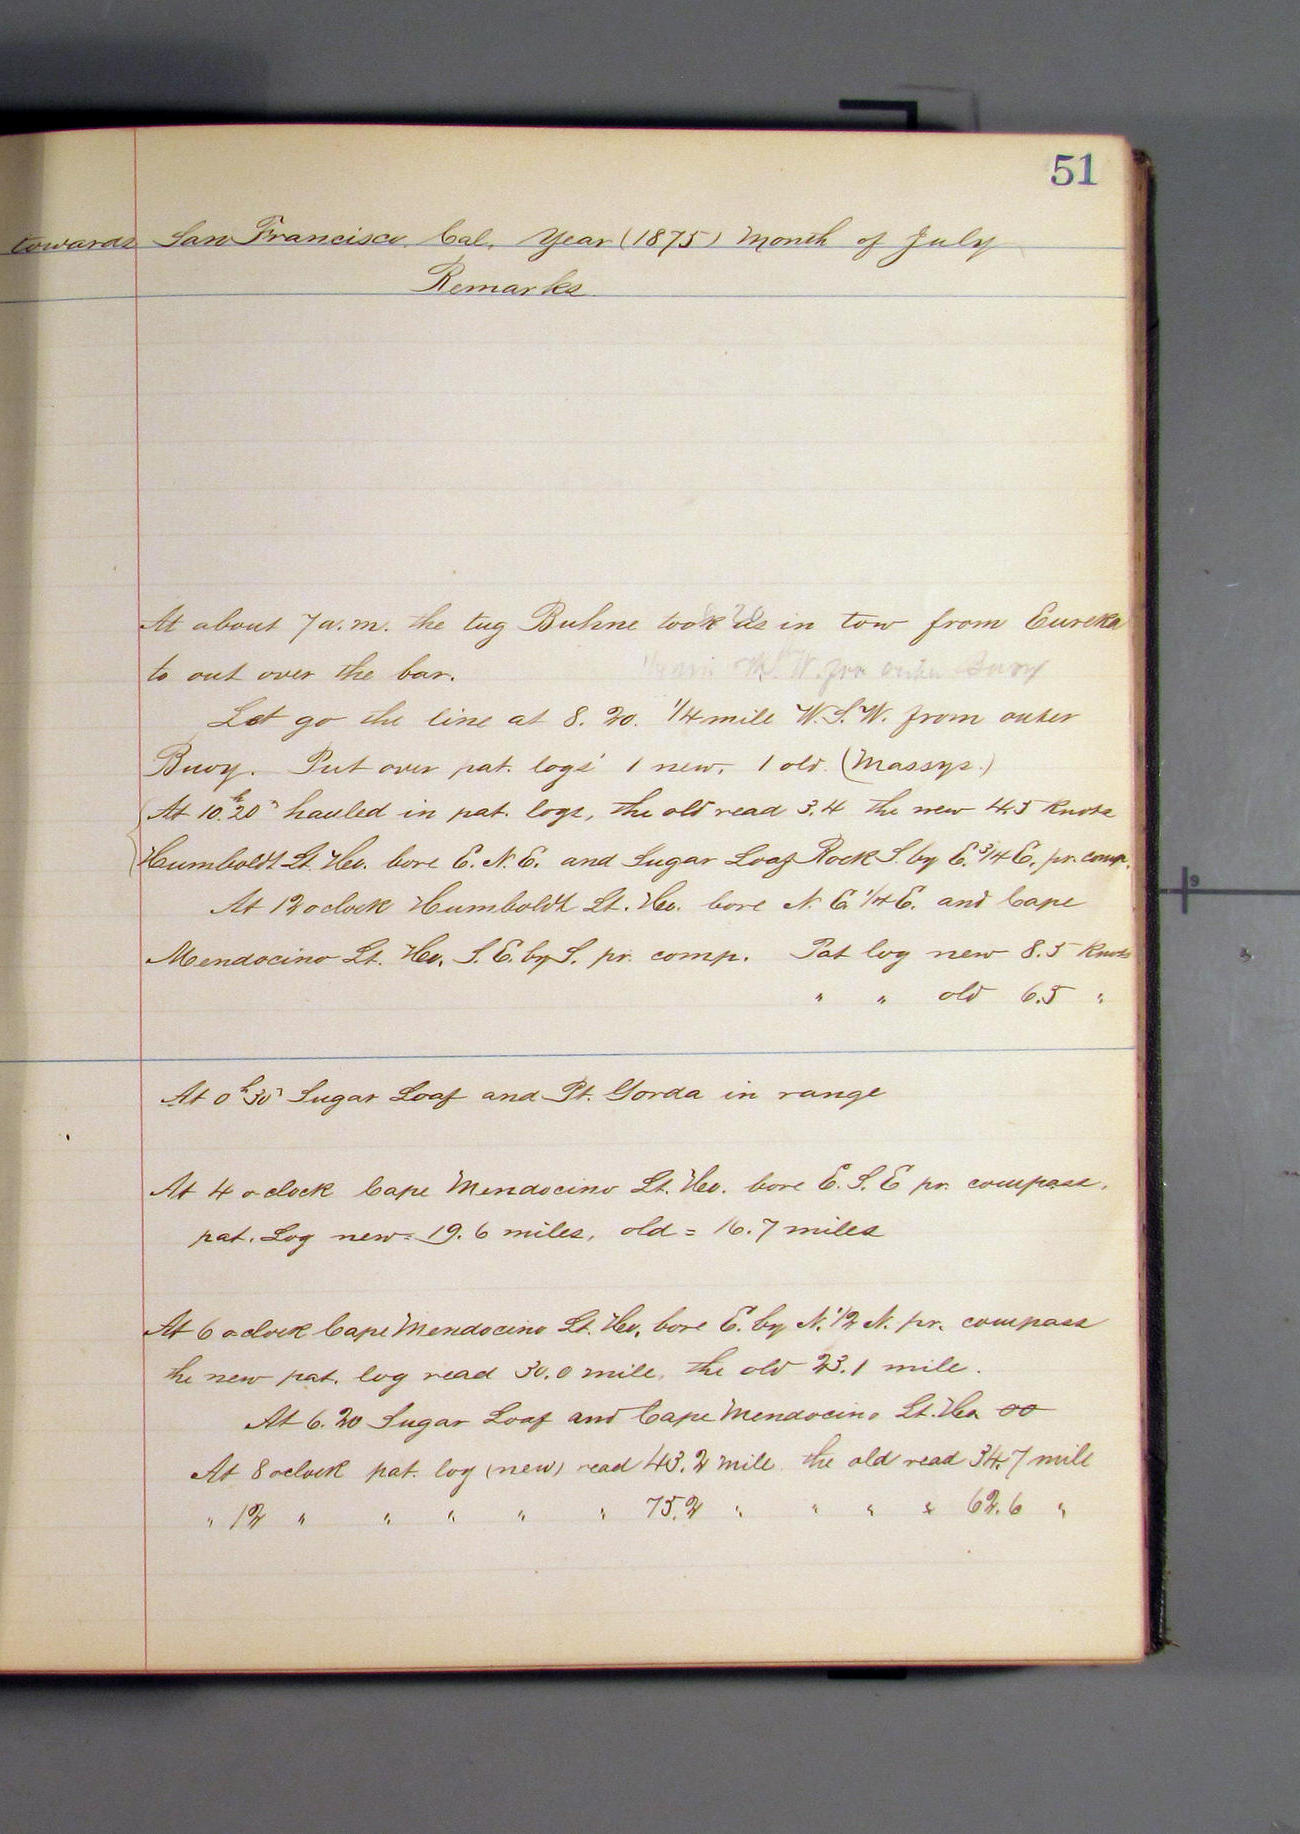 51
towards San Francisco, Cal. Year (1875) Month of July
Remarks
8 20
At about 7 a.m. the tug Buhne took us in tow from Eureka
to out over the bar.
W.S.W. from outer Buoy
Let go the line at 8.20. 1/4 mile W.S.W. from outer
Buoy. Put over pat. logs 1 new, 1 old. (Massys.)
At 10.h20m hauled in pat. logs, the old read 3.4 the new 4.5 knots
Humboldt Lt. Ho. bore E.N.E. and Sugar Loaf Rock S. by E. 3/4 E. pr. comp.
At 12 oclock Humboldt Lt. Ho. bore N.E. 1/4 E. and Cape
Mendocino Lt. Ho. S.E. by S. pr. comp. Pat log new 8.5 knots
" " old 6.5 "
At 0h30m Sugar Loaf and Pt. Gorda in range
At 4 oclock Cape Mendocino Lt. Ho. bore E.S.E pr. compass,
pat. Log new = 19.6 miles, old = 16.7 miles
At 6 oclock Cape Mendocino Lt. Ho. bore E. by N. 1/2 N. pr. compass
the new pat. log read 30.0 mile, the old 23.1 mile.
At 6.20 Sugar Loaf and Cape Mendocino Lt. Ho.
At 8 oclock pat. log (new) read 43.2 mile the old read 34.7 mile
" 12 " " " " " 75.2 " " " " 62.6 "